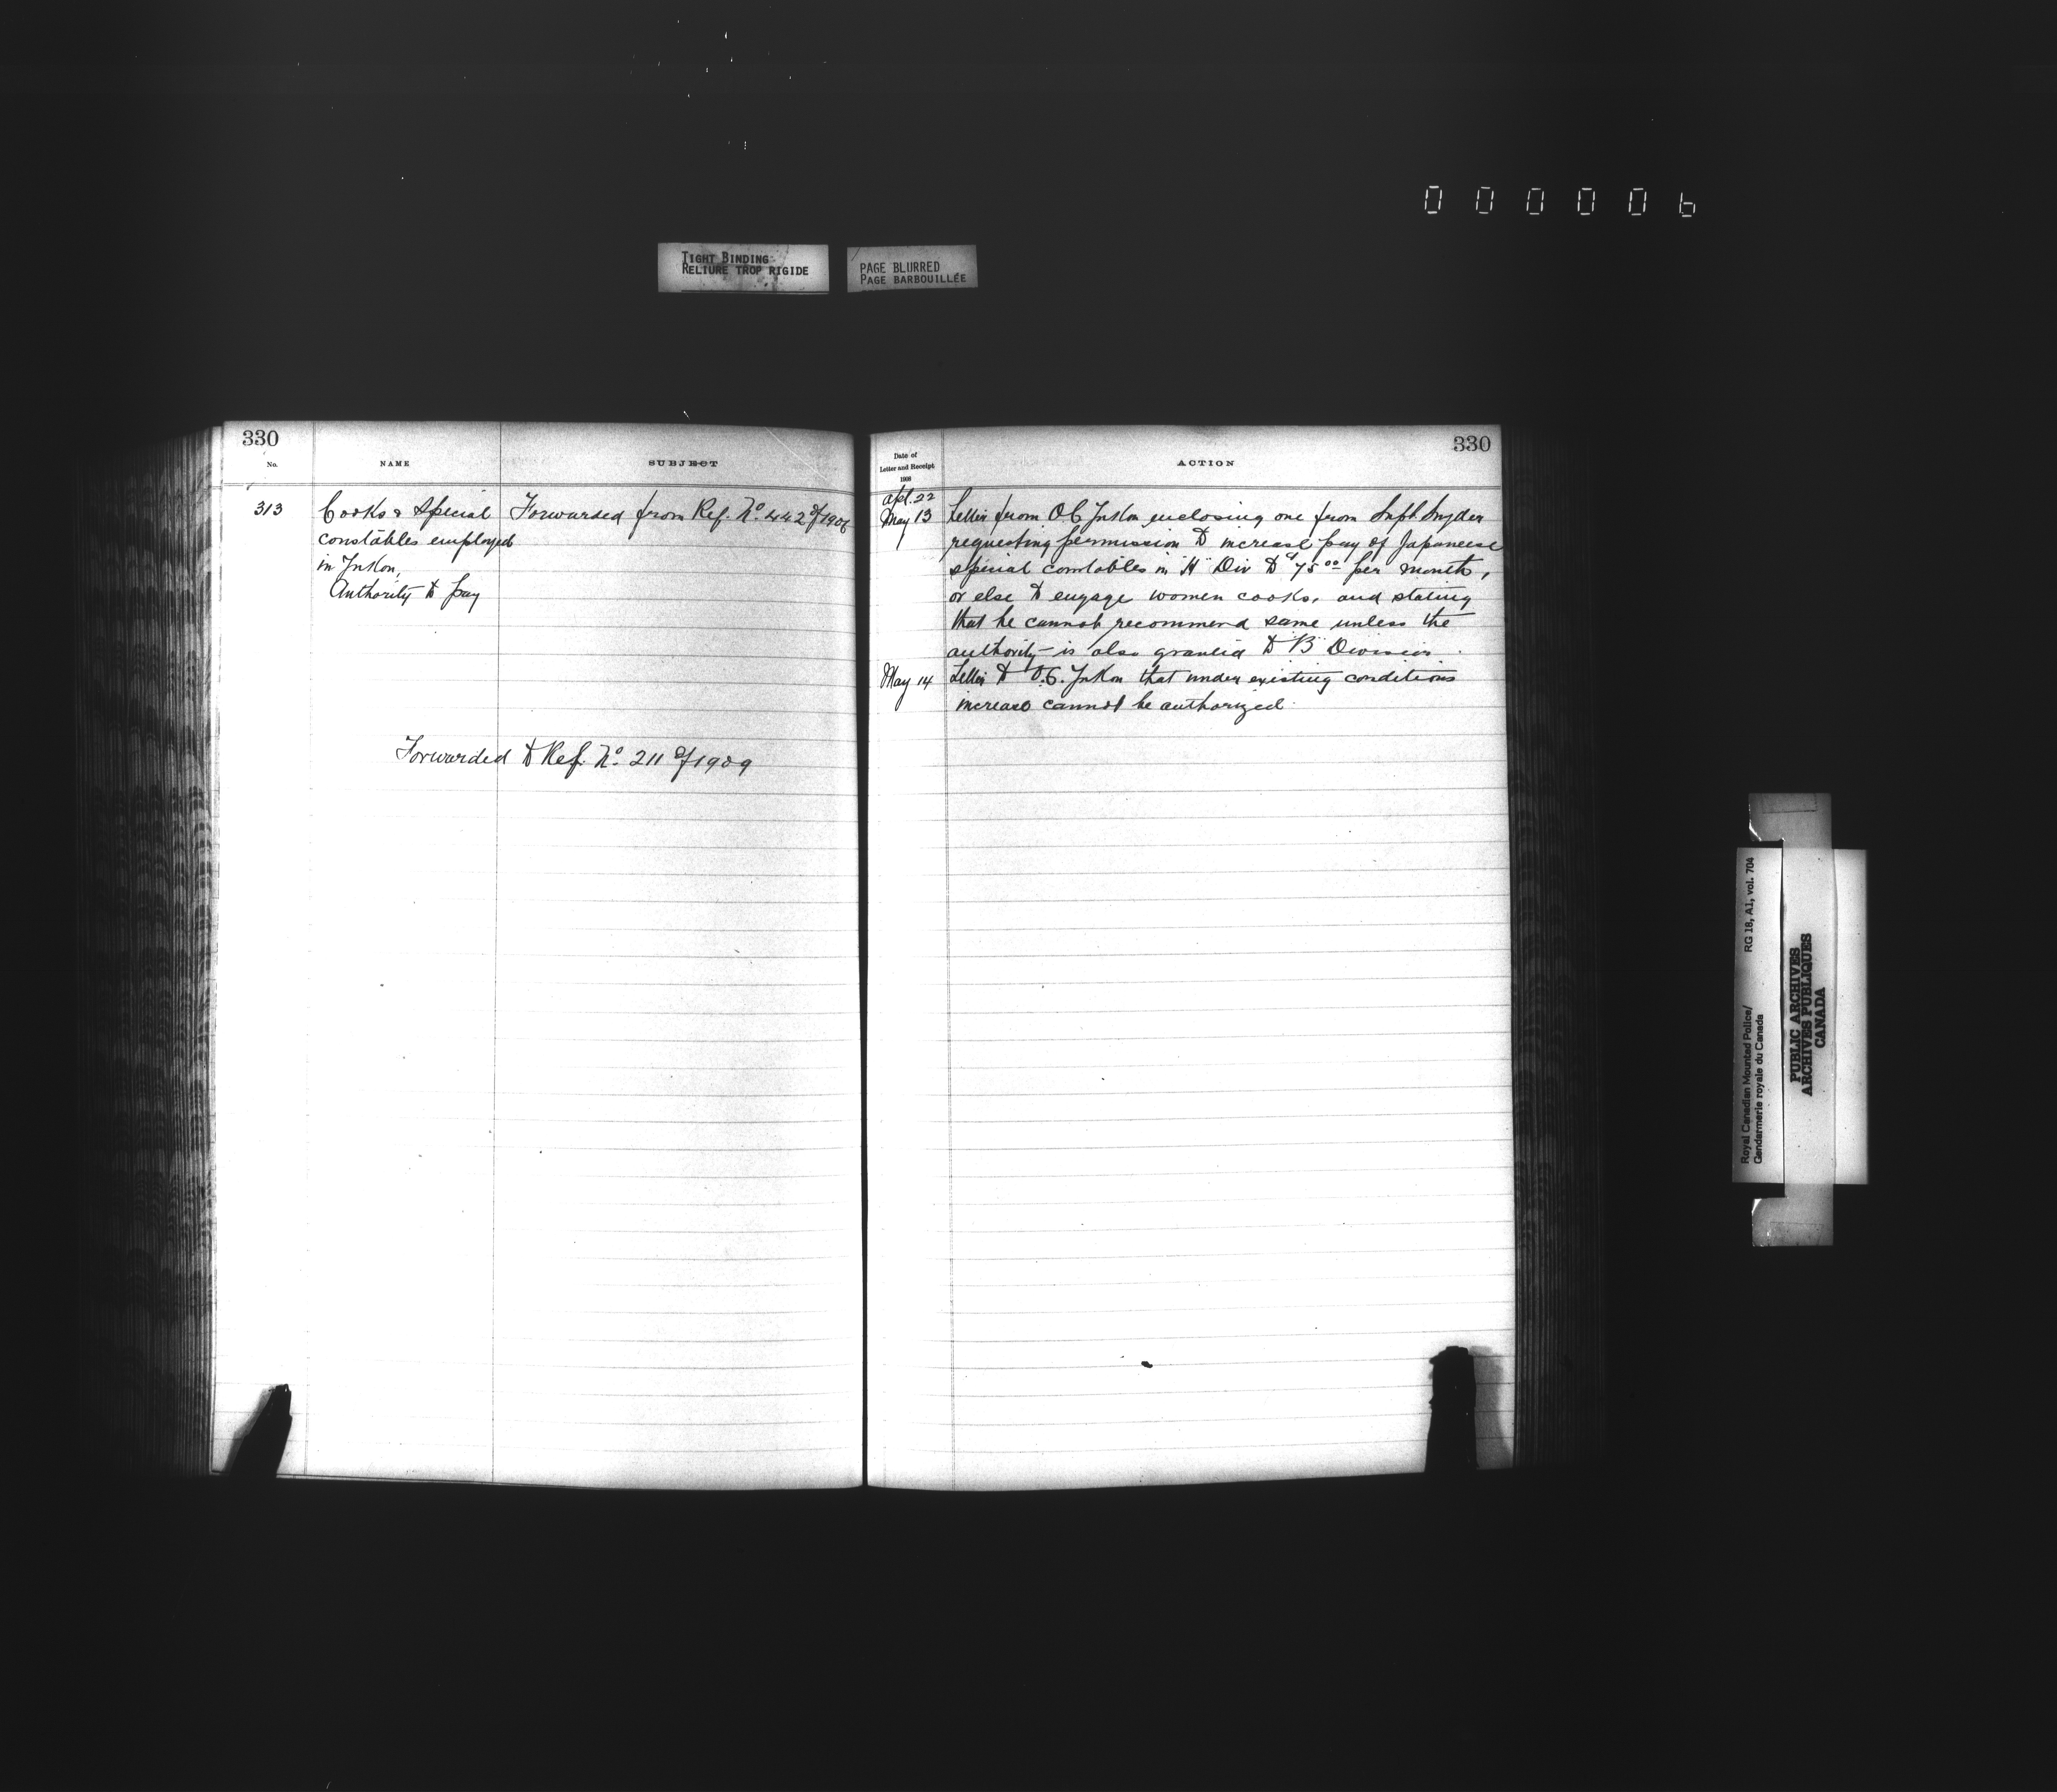 000006
TIGHT BINDING
RELIURE TROP RIGIDE
PAGE BLURRED
PAGE BARBOUILLÉE
330
No.
NAME
SUBJECT
313
Cooks & Special
constables employed
in Yukon,
Authority to pay
Forwarded from Ref. No. 442 of 1906
Forwarded to Ref. No. 211 of 1909
330
Date of
Letter and Receipt
1908
ACTION
Apl. 22
May 13
Letter from O.C. Yukon enclosing one from Supt. Snyder
requesting permission to increase pay of Japanese
special constables in "H" Div to $75.00 per month,
or else to engage women cooks, and stating
that he cannot recommend same unless the
authority is also granted to "B" Division.
May 14
Letter to O.C. Yukon that under existing conditions
increase cannot be authorized.
Royal Canadian Mounted Police/ RG 18, A1, vol. 704
Gendarmerie royale du Canada
PUBLIC ARCHIVES
ARCHIVES PUBLIQUES
CANADA